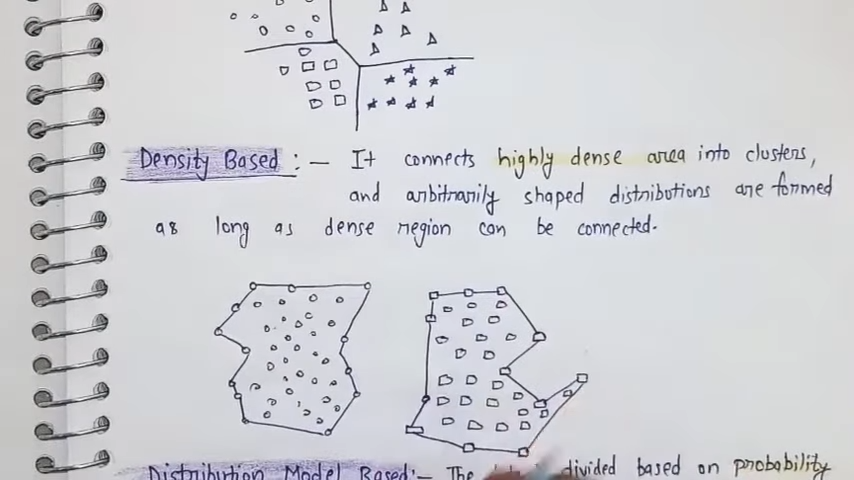 Density Based :- It connects highly dense area into clusters,
and arbitrarily shaped distributions are formed
as long as dense region can be connected.
Distribution Model Based:- The divided based on probability